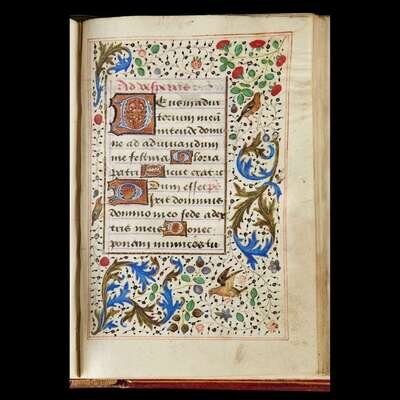 Ad vesperas
Deus in adiu
torium meū
intende domi
ne ad adiuuandum
me festina Gloria
patri sicut erat
Dum esset ps
Dixit dominus
domino meo sede a dex
tris meis Donec
ponam inimicos tu